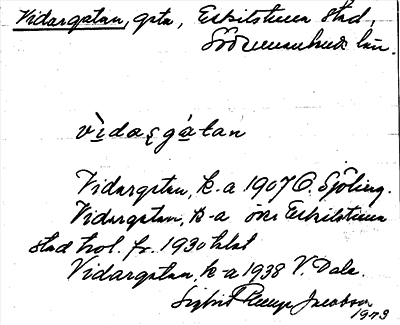 Vidargatan, gata, Eskilstuna stad,
Södermanlands län.
vìdaṣgàtan
Vidargatan, k-a 1907 O. Sjöling.
Vidargatan, k-a över Eskilstuna
stad hol. fr. 1930 talet
Vidargatan, k-a 1938 V. Dale.
Sigbrit Plenge Jacobson
1973